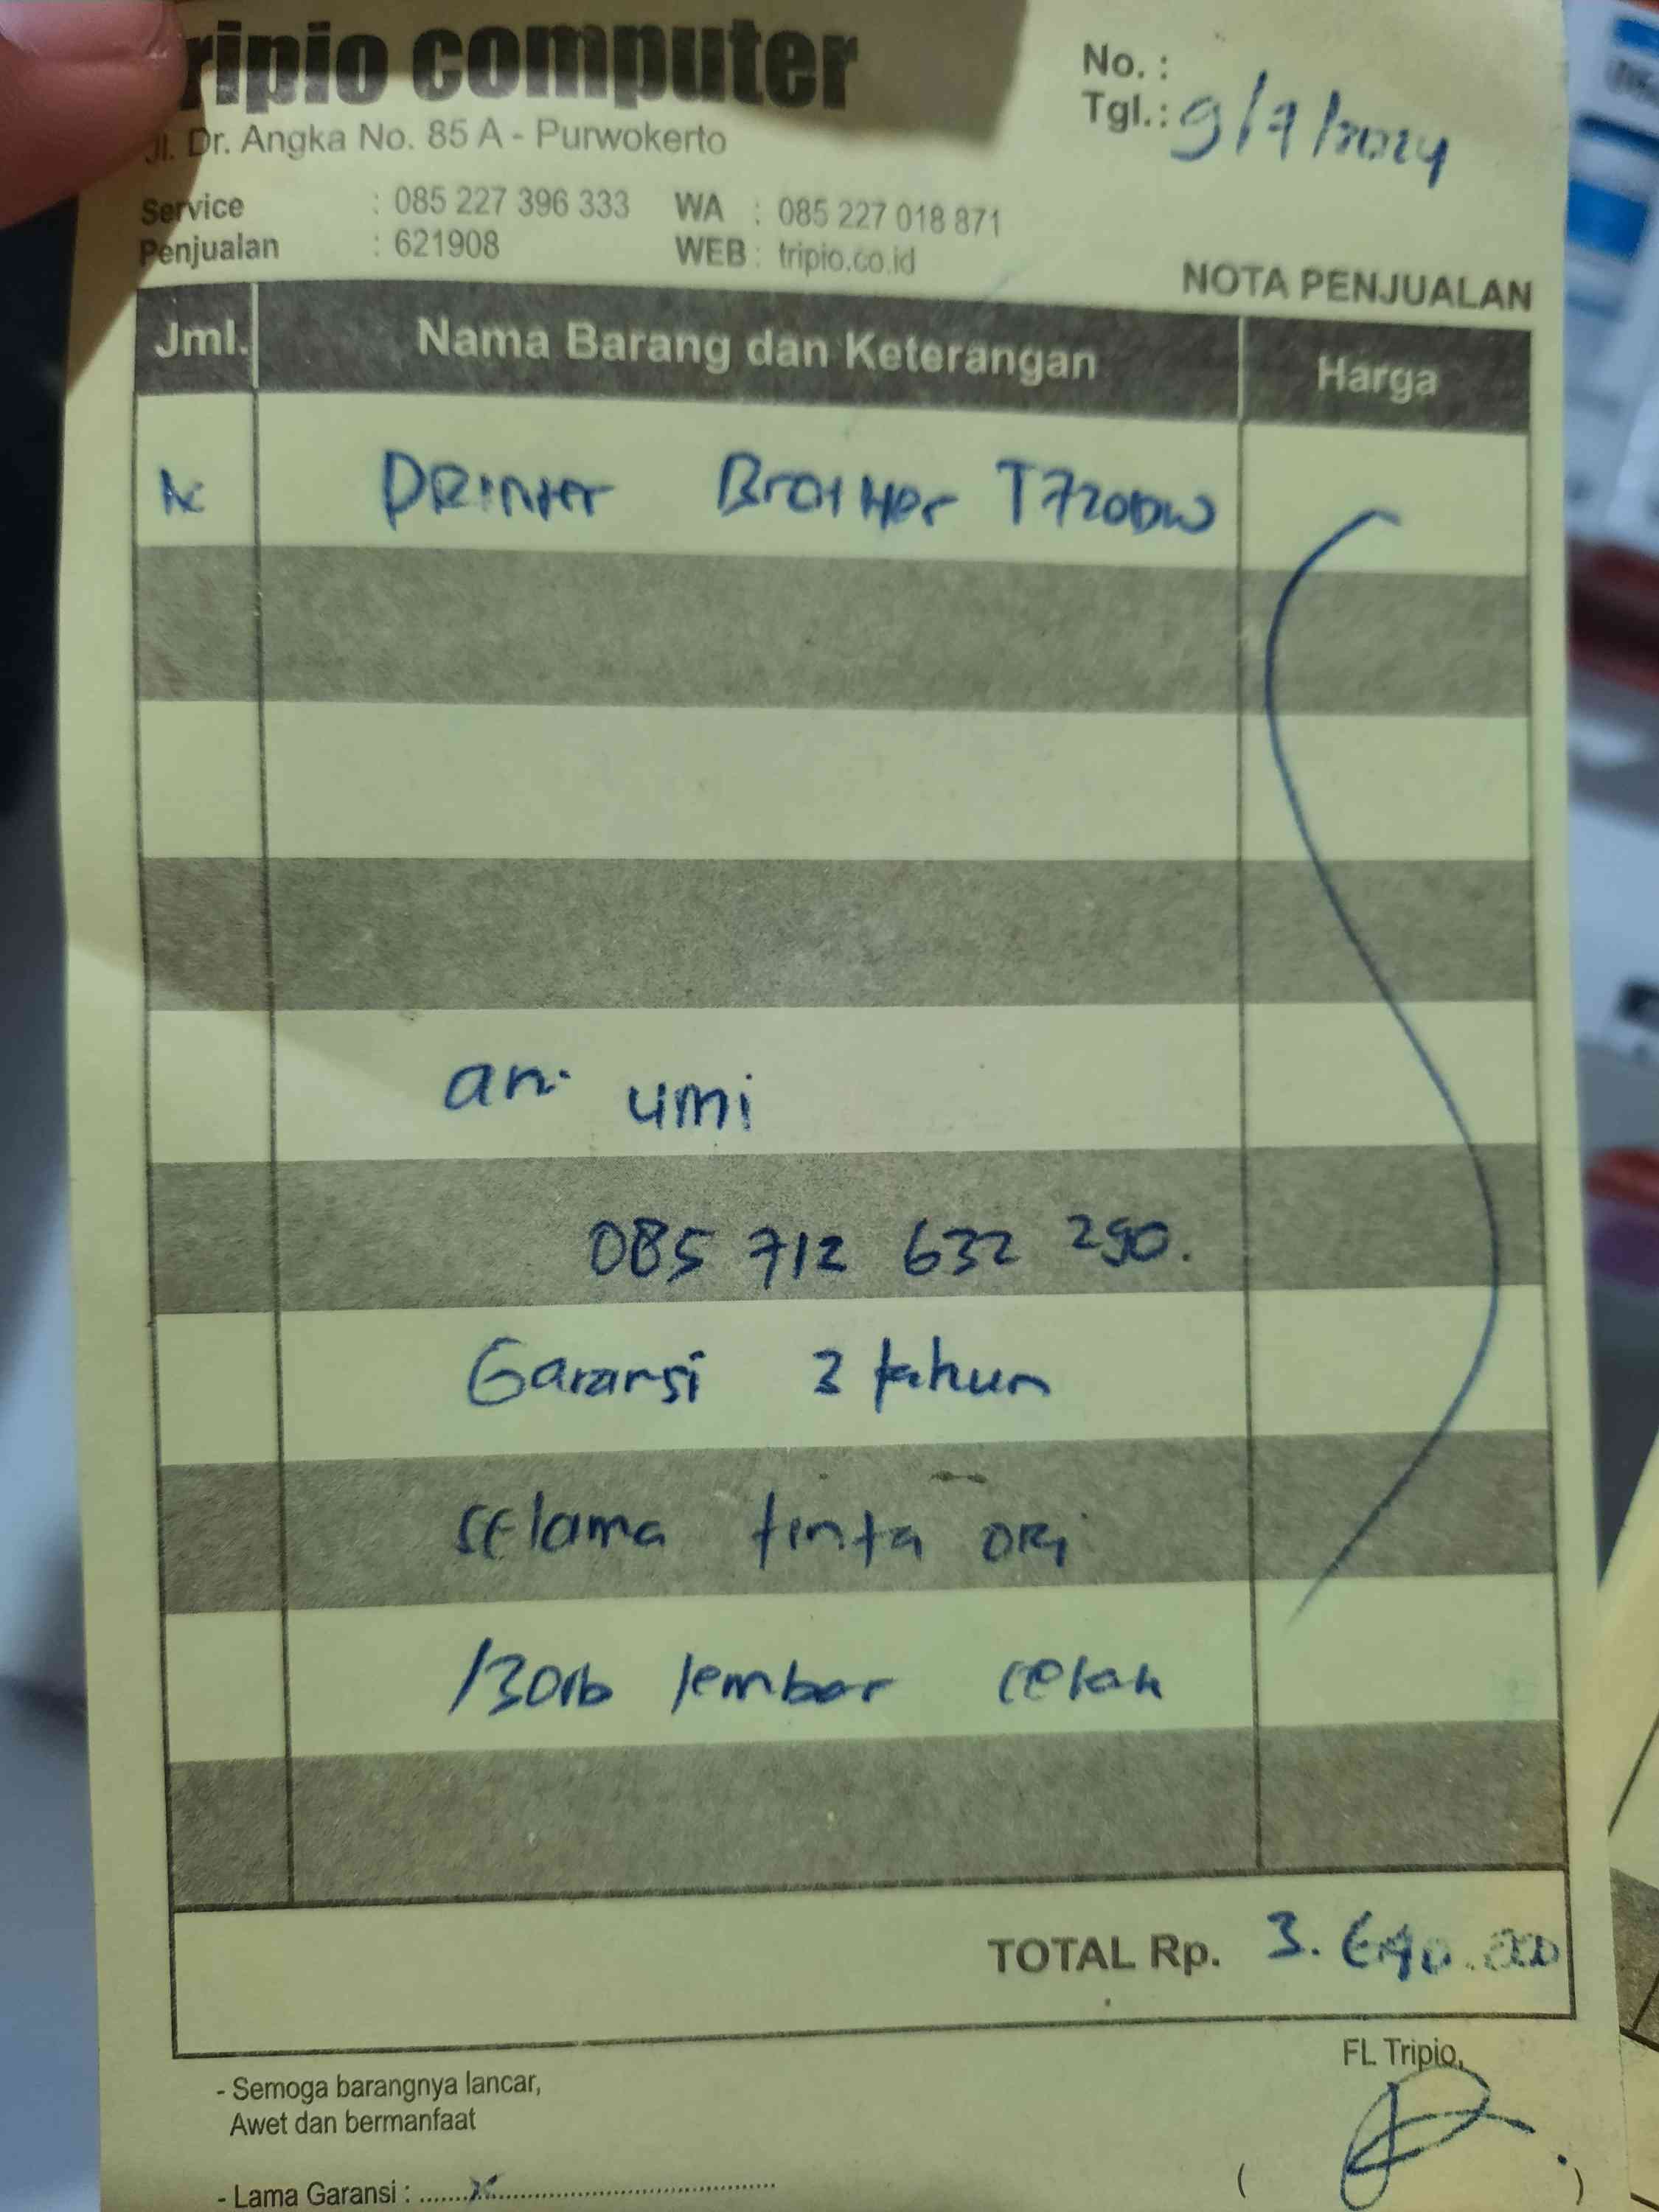 ripio computer
No. :
Tgl.: 9/7/2024
Jl. Dr. Angka No. 85 A - Purwokerto
Service : 085 227 396 333 WA : 085 227 018 871
Penjualan : 621908 WEB : tripio.co.id
NOTA PENJUALAN
Jml. Nama Barang dan Keterangan Harga
Printer Brother T720DW
an. umi
085 712 632 290.
Garansi 3 tahun
selama tinta ori
/30rb lembar cetak
TOTAL Rp. 3.
FL Tripio,
- Semoga barangnya lancar,
Awet dan bermanfaat
- Lama Garansi : ......x..............................
( )